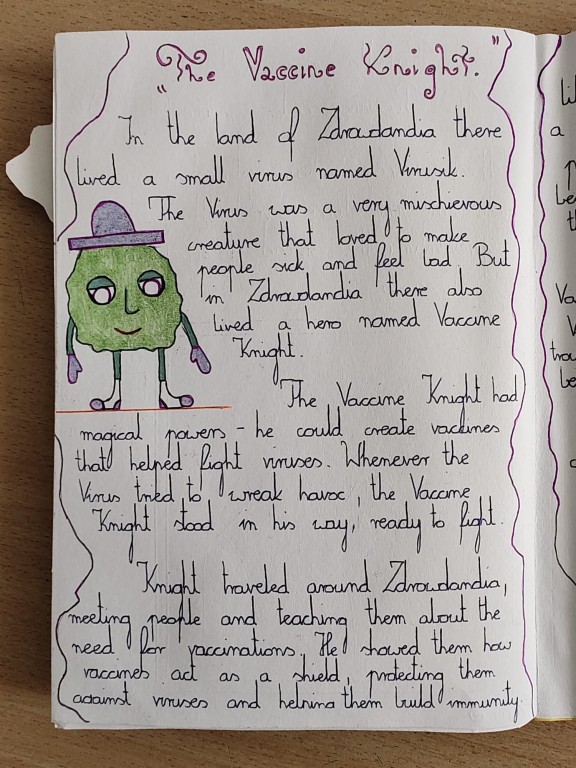 "The Vaccine Knight."
In the land of Zdrowlandia there
lived a small virus named Virusik.
The Virus was a very mischievous
creature that loved to make
people sick and feel bad. But
in Zdrowlandia there also
lived a hero named Vaccine
Knight.
The Vaccine Knight had
magical powers - he could create vaccines
that helped fight viruses. Whenever the
Virus tried to wreak havoc, the Vaccine
Knight stood in his way, ready to fight.
Knight traveled around Zdrowlandia,
meeting people and teaching them about the
need for vaccinations. He showed them how
vaccines act as a shield, protecting them
against viruses and helping them build immunity.
a